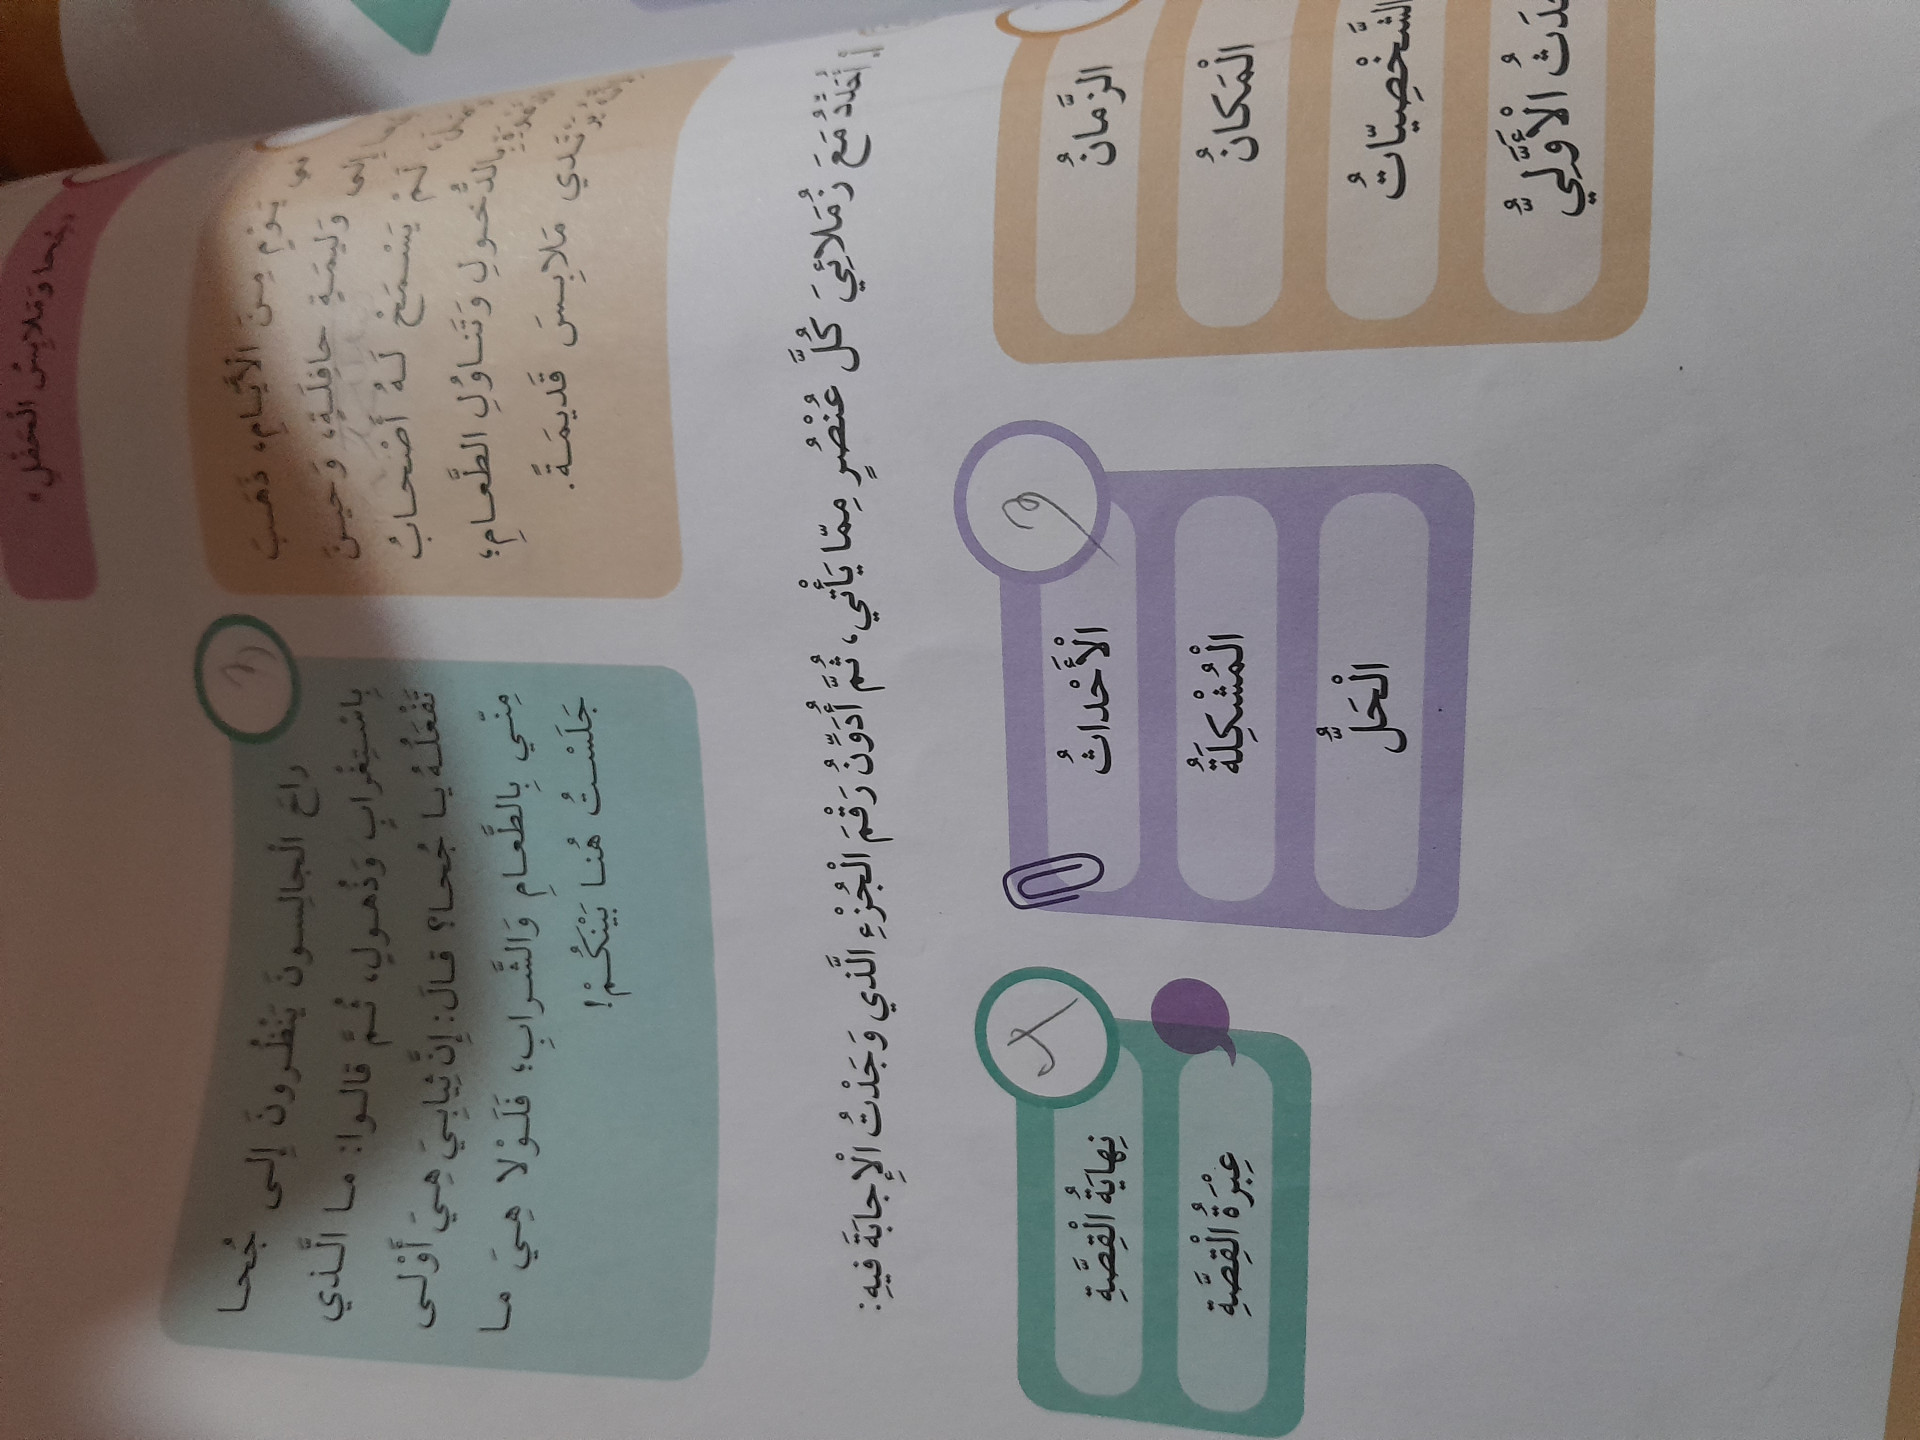 جُحا وَمَلابِسُ الْحَفْلِ
يَوْمٍ مِنَ الْأَيّامِ، ذَهَبَ
إِلى وَليمَةٍ حافِلَةٍ، وَحينَ
لَمْ يَسْمَحْ لَهُ أَصْحابُ
بِالدُّخولِ وَتَناوُلِ الطَّعامِ؛
يَرْتَدي مَلابِسَ قَديمَةً.
راحَ الْجالِسونَ يَنْظُرونَ إِلى جُحا
بِاسْتِغْرابٍ وَذُهولٍ، ثُمَّ قالوا: ما الَّذي
تَفْعَلُهُ يا جُحا؟ قالَ: إِنَّ ثِيابِيَ هِيَ أَوْلى
مِنّي بِالطَّعامِ وَالشَّرابِ؛ فَلَوْلا هِيَ ما
جَلَسْتُ هُنا بَيْنَكُمْ!
أُحَدِّدُ مَعَ زُمَلائِيَ كُلَّ عُنْصُرٍ مِمّا يَأْتي، ثُمَّ أُدَوِّنُ رَقْمَ الْجُزْءِ الَّذي وَجَدْتُ الْإِجابَةَ فيهِ:
الزَّمانُ
الْمَكانُ
الشَّخْصِيّاتُ
الْأَوَّلِيُّ
٢
الْأَحْداثُ
الْمُشْكِلَةُ
الْحَلُّ
نِهايَةُ الْقِصَّةِ
عِبْرَةُ الْقِصَّةِ